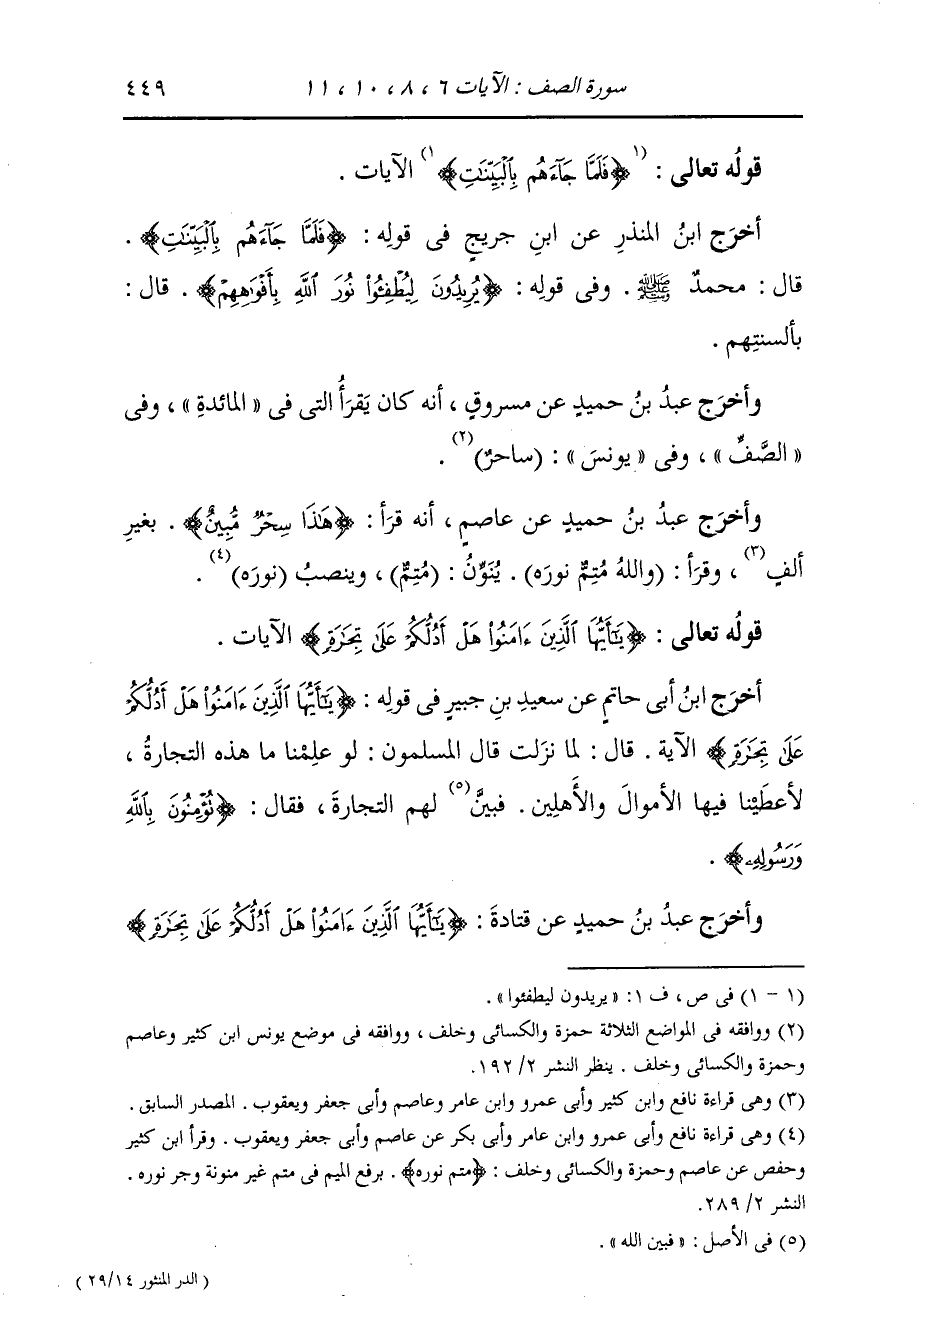 سورة الصف : الآيات ٦ ، ٨ ، ١٠ ، ١١ ٤٤٩
قولُه تعالى : (١)﴿فَلَمَّا جَآءَهُم بِٱلْبَيِّنَٰتِ﴾(١) الآيات .
أخرَج ابنُ المنذرِ عن ابنِ جريجٍ فى قولِه : ﴿فَلَمَّا جَآءَهُم بِٱلْبَيِّنَٰتِ﴾ .
قال : محمدٌ ﷺ . وفى قولِه : ﴿يُرِيدُونَ لِيُطْفِـُٔوا۟ نُورَ ٱللَّهِ بِأَفْوَٰهِهِمْ﴾ . قال :
بألسنتِهم .
وأخرَج عبدُ بنُ حميدٍ عن مسروقٍ ، أنه كان يَقرَأُ التى فى « المائدةِ » ، وفى
« الصَّفِّ » ، وفى « يونسَ » : (ساحرٌ)(٢) .
وأخرَج عبدُ بنُ حميدٍ عن عاصمٍ ، أنه قرَأ : ﴿هَٰذَا سِحْرٌ مُّبِينٌ﴾ . بغيرِ
ألفٍ(٣) ، وقرَأ : (واللهُ مُتِمٌّ نورَه) . يُنَوِّنُ : (مُتِمٌّ) ، وينصبُ (نورَه)(٤) .
قولُه تعالى : ﴿يَٰٓأَيُّهَا ٱلَّذِينَ ءَامَنُوا۟ هَلْ أَدُلُّكُمْ عَلَىٰ تِجَٰرَةٍ﴾ الآيات .
أخرَج ابنُ أبى حاتمٍ عن سعيدِ بنِ جبيرٍ فى قولِه : ﴿يَٰٓأَيُّهَا ٱلَّذِينَ ءَامَنُوا۟ هَلْ أَدُلُّكُمْ
عَلَىٰ تِجَٰرَةٍ﴾ الآية . قال : لما نزَلت قال المسلمون : لو علِمْنا ما هذه التجارةُ ،
لأعطَيْنا فيها الأموالَ والأهلِين . فبينَّ(٥) لهم التجارةَ ، فقال : ﴿تُؤْمِنُونَ بِٱللَّهِ
وَرَسُولِهِۦ﴾ .
وأخرَج عبدُ بنُ حميدٍ عن قتادةَ : ﴿يَٰٓأَيُّهَا ٱلَّذِينَ ءَامَنُوا۟ هَلْ أَدُلُّكُمْ عَلَىٰ تِجَٰرَةٍ﴾
(١ - ١) فى ص ، ف ١: « يريدون ليطفئوا » .
(٢) ووافقه فى المواضع الثلاثة حمزة والكسائى وخلف ، ووافقه فى موضع يونس ابن كثير وعاصم
وحمزة والكسائى وخلف . ينظر النشر ٢/ ١٩٢.
(٣) وهى قراءة نافع وابن كثير وأبى عمرو وابن عامر وعاصم وأبى جعفر ويعقوب . المصدر السابق .
(٤) وهى قراءة نافع وأبى عمرو وابن عامر وأبى بكر عن عاصم وأبى جعفر ويعقوب . وقرأ ابن كثير
وحفص عن عاصم وحمزة والكسائى وخلف : ﴿متم نوره﴾ . برفع الميم فى متم غير منونة وجر نوره .
النشر ٢/ ٢٨٩.
(٥) فى الأصل : « فبين الله » .
( الدر المنثور ٢٩/١٤ )